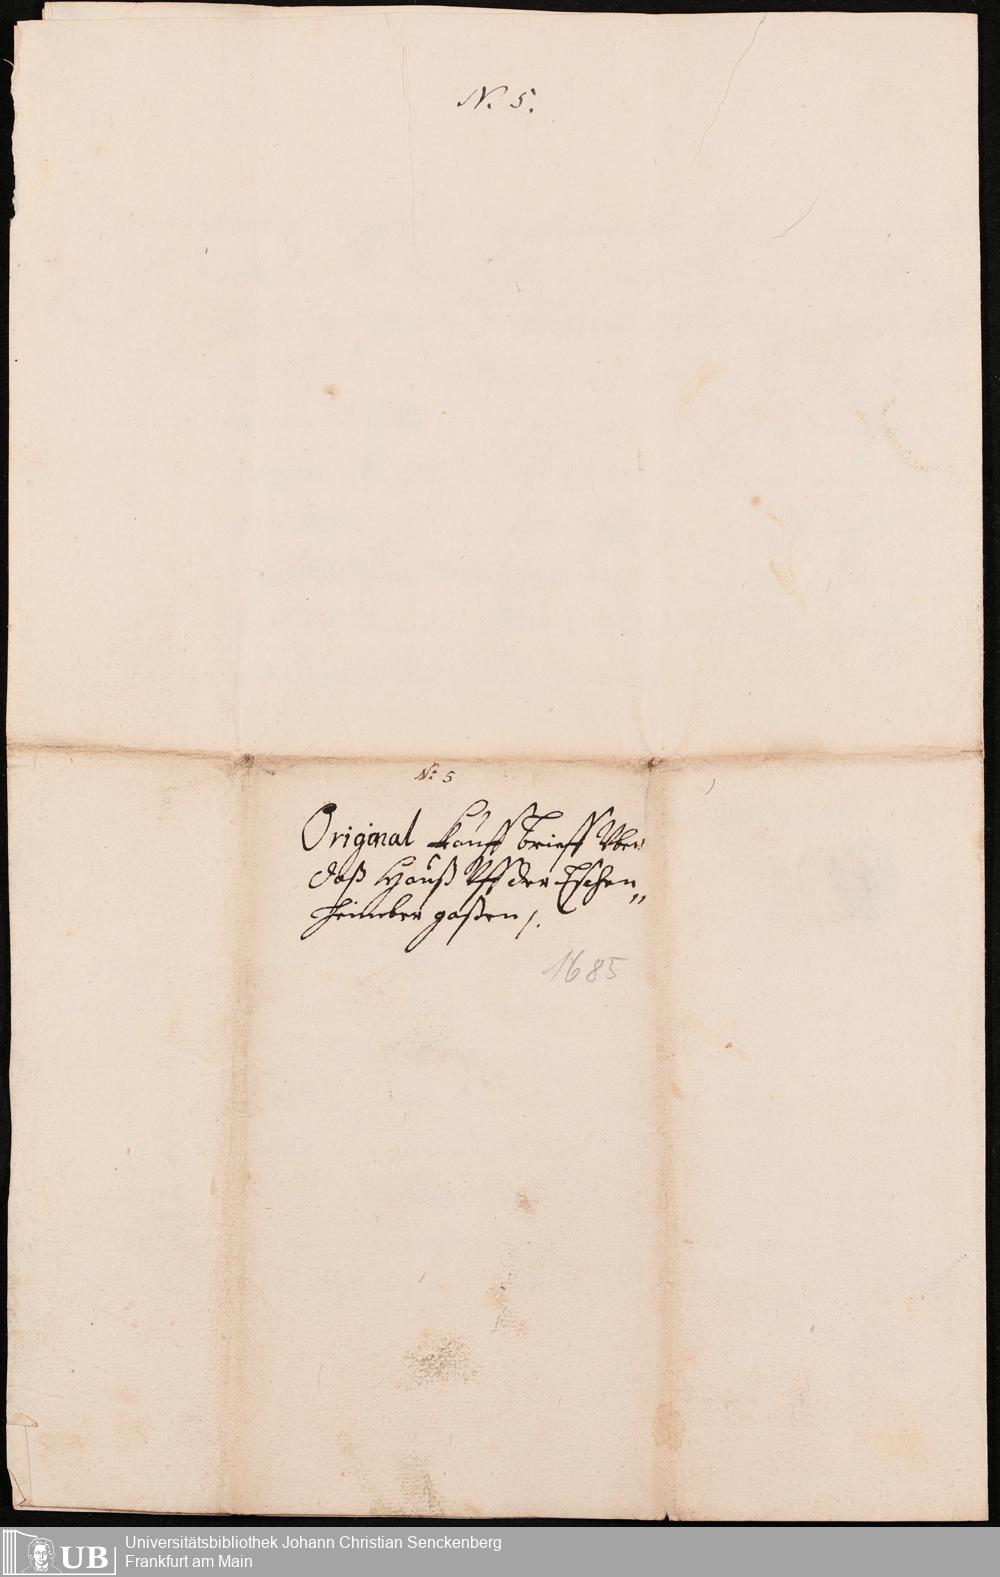 N. 5.
N: 5
Original Kauff brieff Uber
daß Hauß Uff der Eschen„
heimber gaßen /.
1685
UB
Universitätsbibliothek Johann Christian Senckenberg
Frankfurt am Main